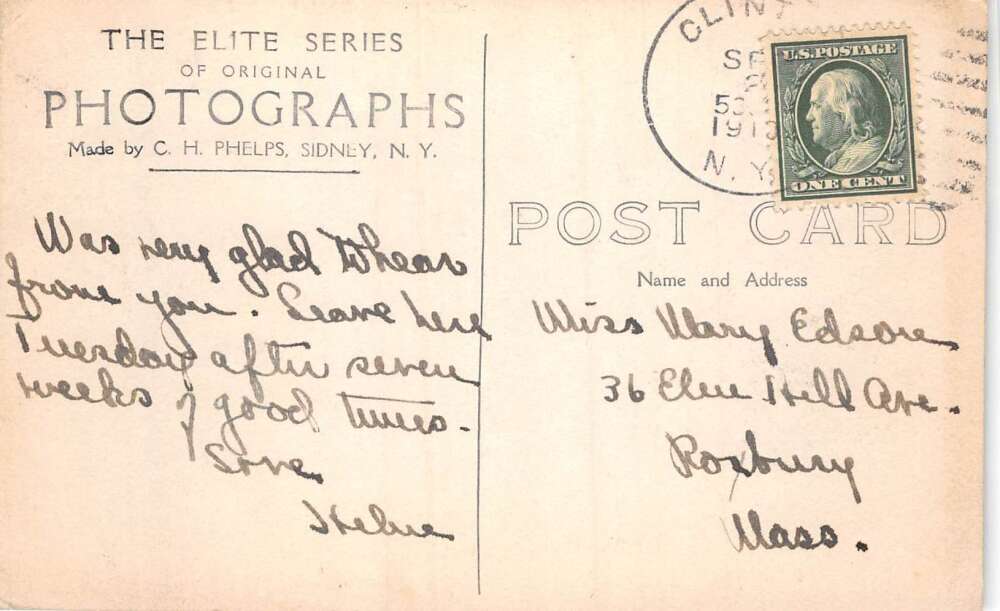 THE ELITE SERIES
OF ORIGINAL
PHOTOGRAPHS
Made by C. H. PHELPS, SIDNEY, N. Y.
Was very glad to hear
from you. Leave here
Tuesday after seven
weeks of good times.
Love
Helen
CLINT
SE
1913
N. Y.
U.S. POSTAGE
ONE CENT
POST CARD
Name and Address
Miss Mary Edson
36 Elm Hill Ave.
Roxbury
Mass.